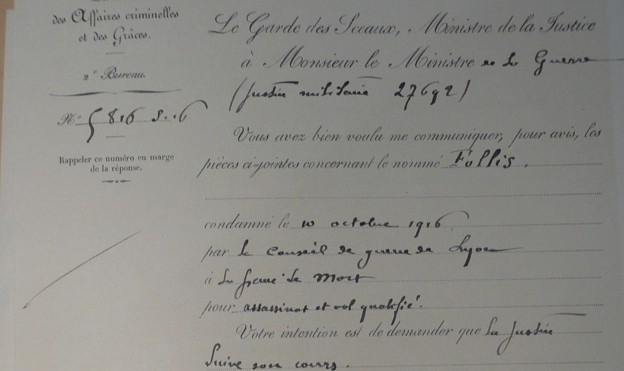 des Affaires criminelles
et des Grâces.
2e Bureau.
No 5816 S. 16
Rappeler ce numéro en marge
de la réponse.
Le Garde des Sceaux, Ministre de la Justice
à Monsieur le Ministre de la Guerre
(Justice militaire 27692)
Vous avez bien voulu me communiquer, pour avis, les
pièces ci-jointes concernant le nommé Follis.
condamné le 10 octobre 1916
par le Conseil de guerre de Lyon
à la peine de Mort
pour assassinat et vol qualifié.
Votre intention est de demander que la Justice
suive son cours.